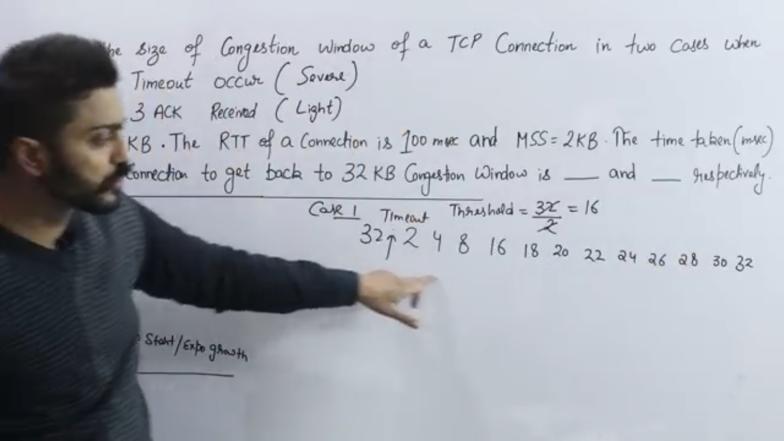 he size of Congestion Window of a TCP Connection in two Cases when
Timeout occur (Severe)
3 ACK Received (Light)
KB. The RTT of a Connection is 100 msec and MSS = 2KB. The time taken (msec)
Connection to get back to 32 KB Congestion Window is ___ and ___ respectively.
Case 1 Timeout Threshold = 32/2 = 16
32 ↑ 2 4 8 16 18 20 22 24 26 28 30 32
Start/Expo growth